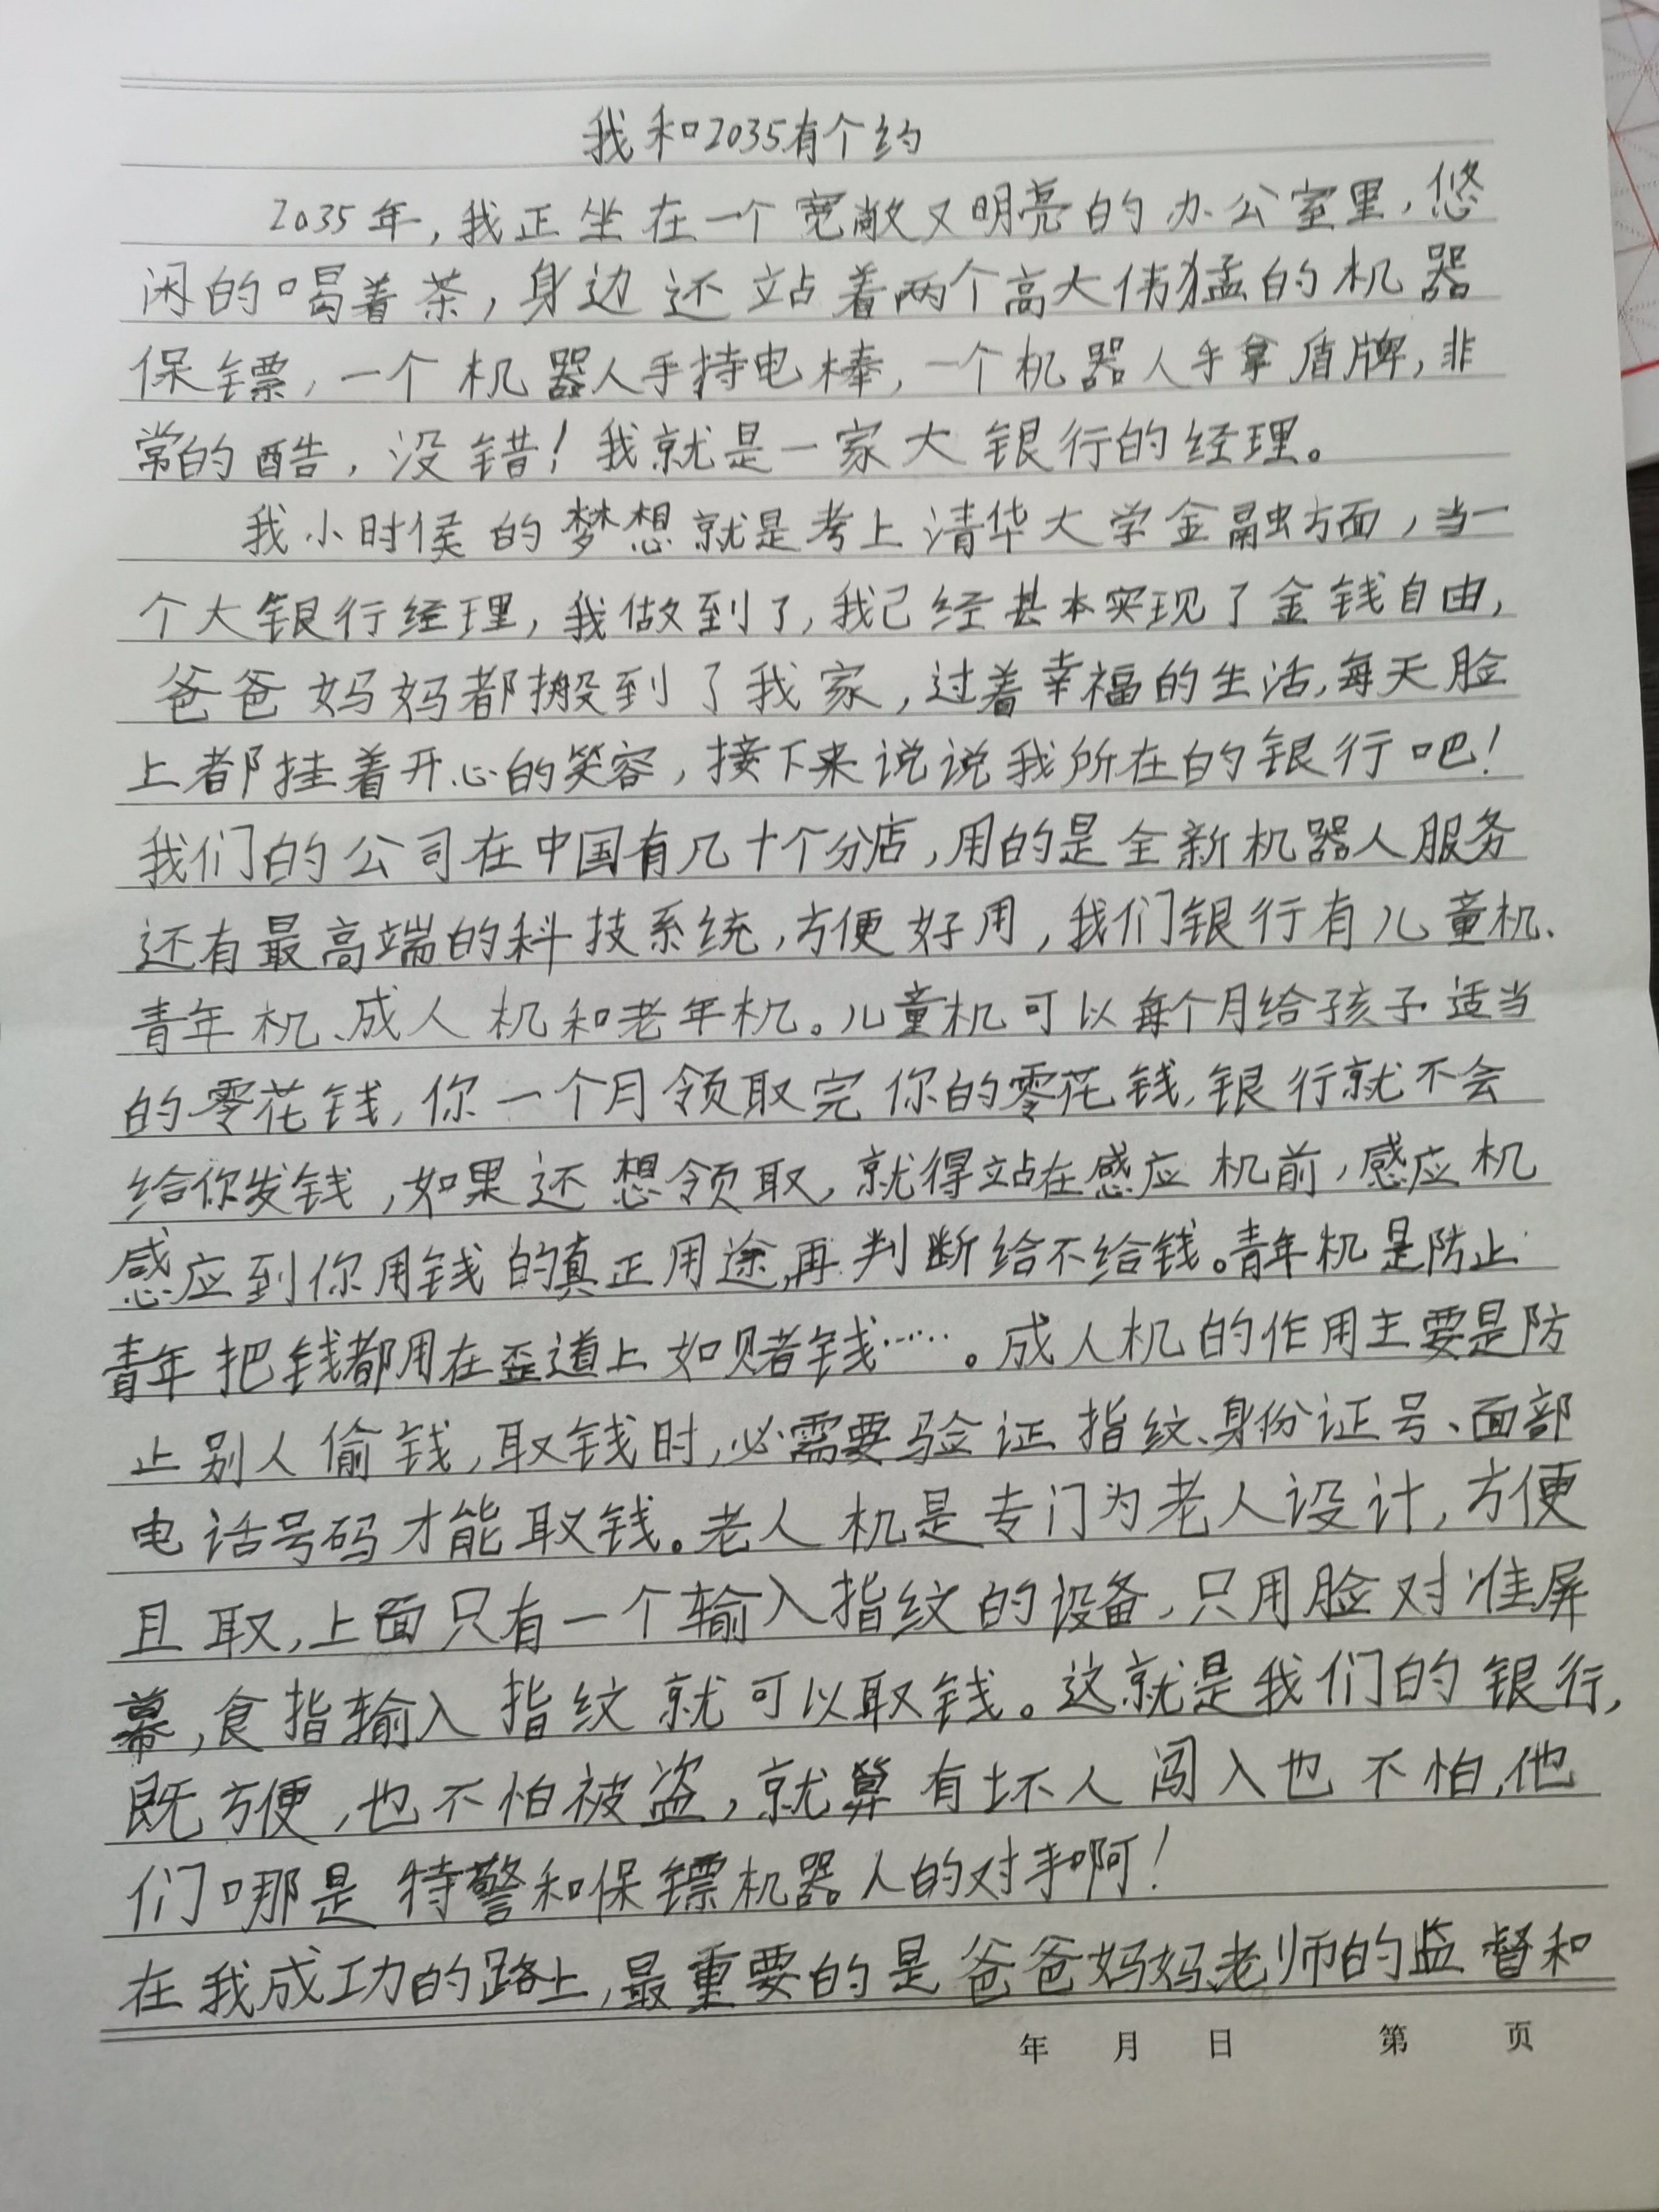 我和2035有个约
2035年,我正坐在一个宽敞又明亮的办公室里,悠
闲的喝着茶,身边还站着两个高大伟猛的机器
保镖,一个机器人手持电棒,一个机器人手拿盾牌,非
常的酷,没错!我就是一家大银行的经理。
我小时侯的梦想就是考上清华大学金融方面,当一
个大银行经理,我做到了,我己经基本实现了金钱自由,
爸爸妈妈都搬到了我家,过着幸福的生活,每天脸
上都挂着开心的笑容,接下来说说我所在的银行吧!
我们的公司在中国有几十个分店,用的是全新机器人服务
还有最高端的科技系统,方便好用,我们银行有儿童机、
青年机、成人机和老年机。儿童机可以每个月给孩子适当
的零花钱,你一个月领取完你的零花钱,银行就不会
给你发钱,如果还想领取,就得站在感应机前,感应机
感应到你用钱的真正用途,再判断给不给钱。青年机是防止
青年把钱都用在歪道上如赌钱……。成人机的作用主要是防
止别人偷钱,取钱时,必需要验证指纹、身份证号、面部
电话号码才能取钱。老人机是专门为老人设计,方便
且取,上面只有一个输入指纹的设备,只用脸对准屏
幕,食指输入指纹就可以取钱。这就是我们的银行,
既方便,也不怕被盗,就算有坏人闯入也不怕,他
们哪是特警和保镖机器人的对手啊!
在我成功的路上,最重要的是爸爸妈妈、老师的监督和
年 月 日 第 页